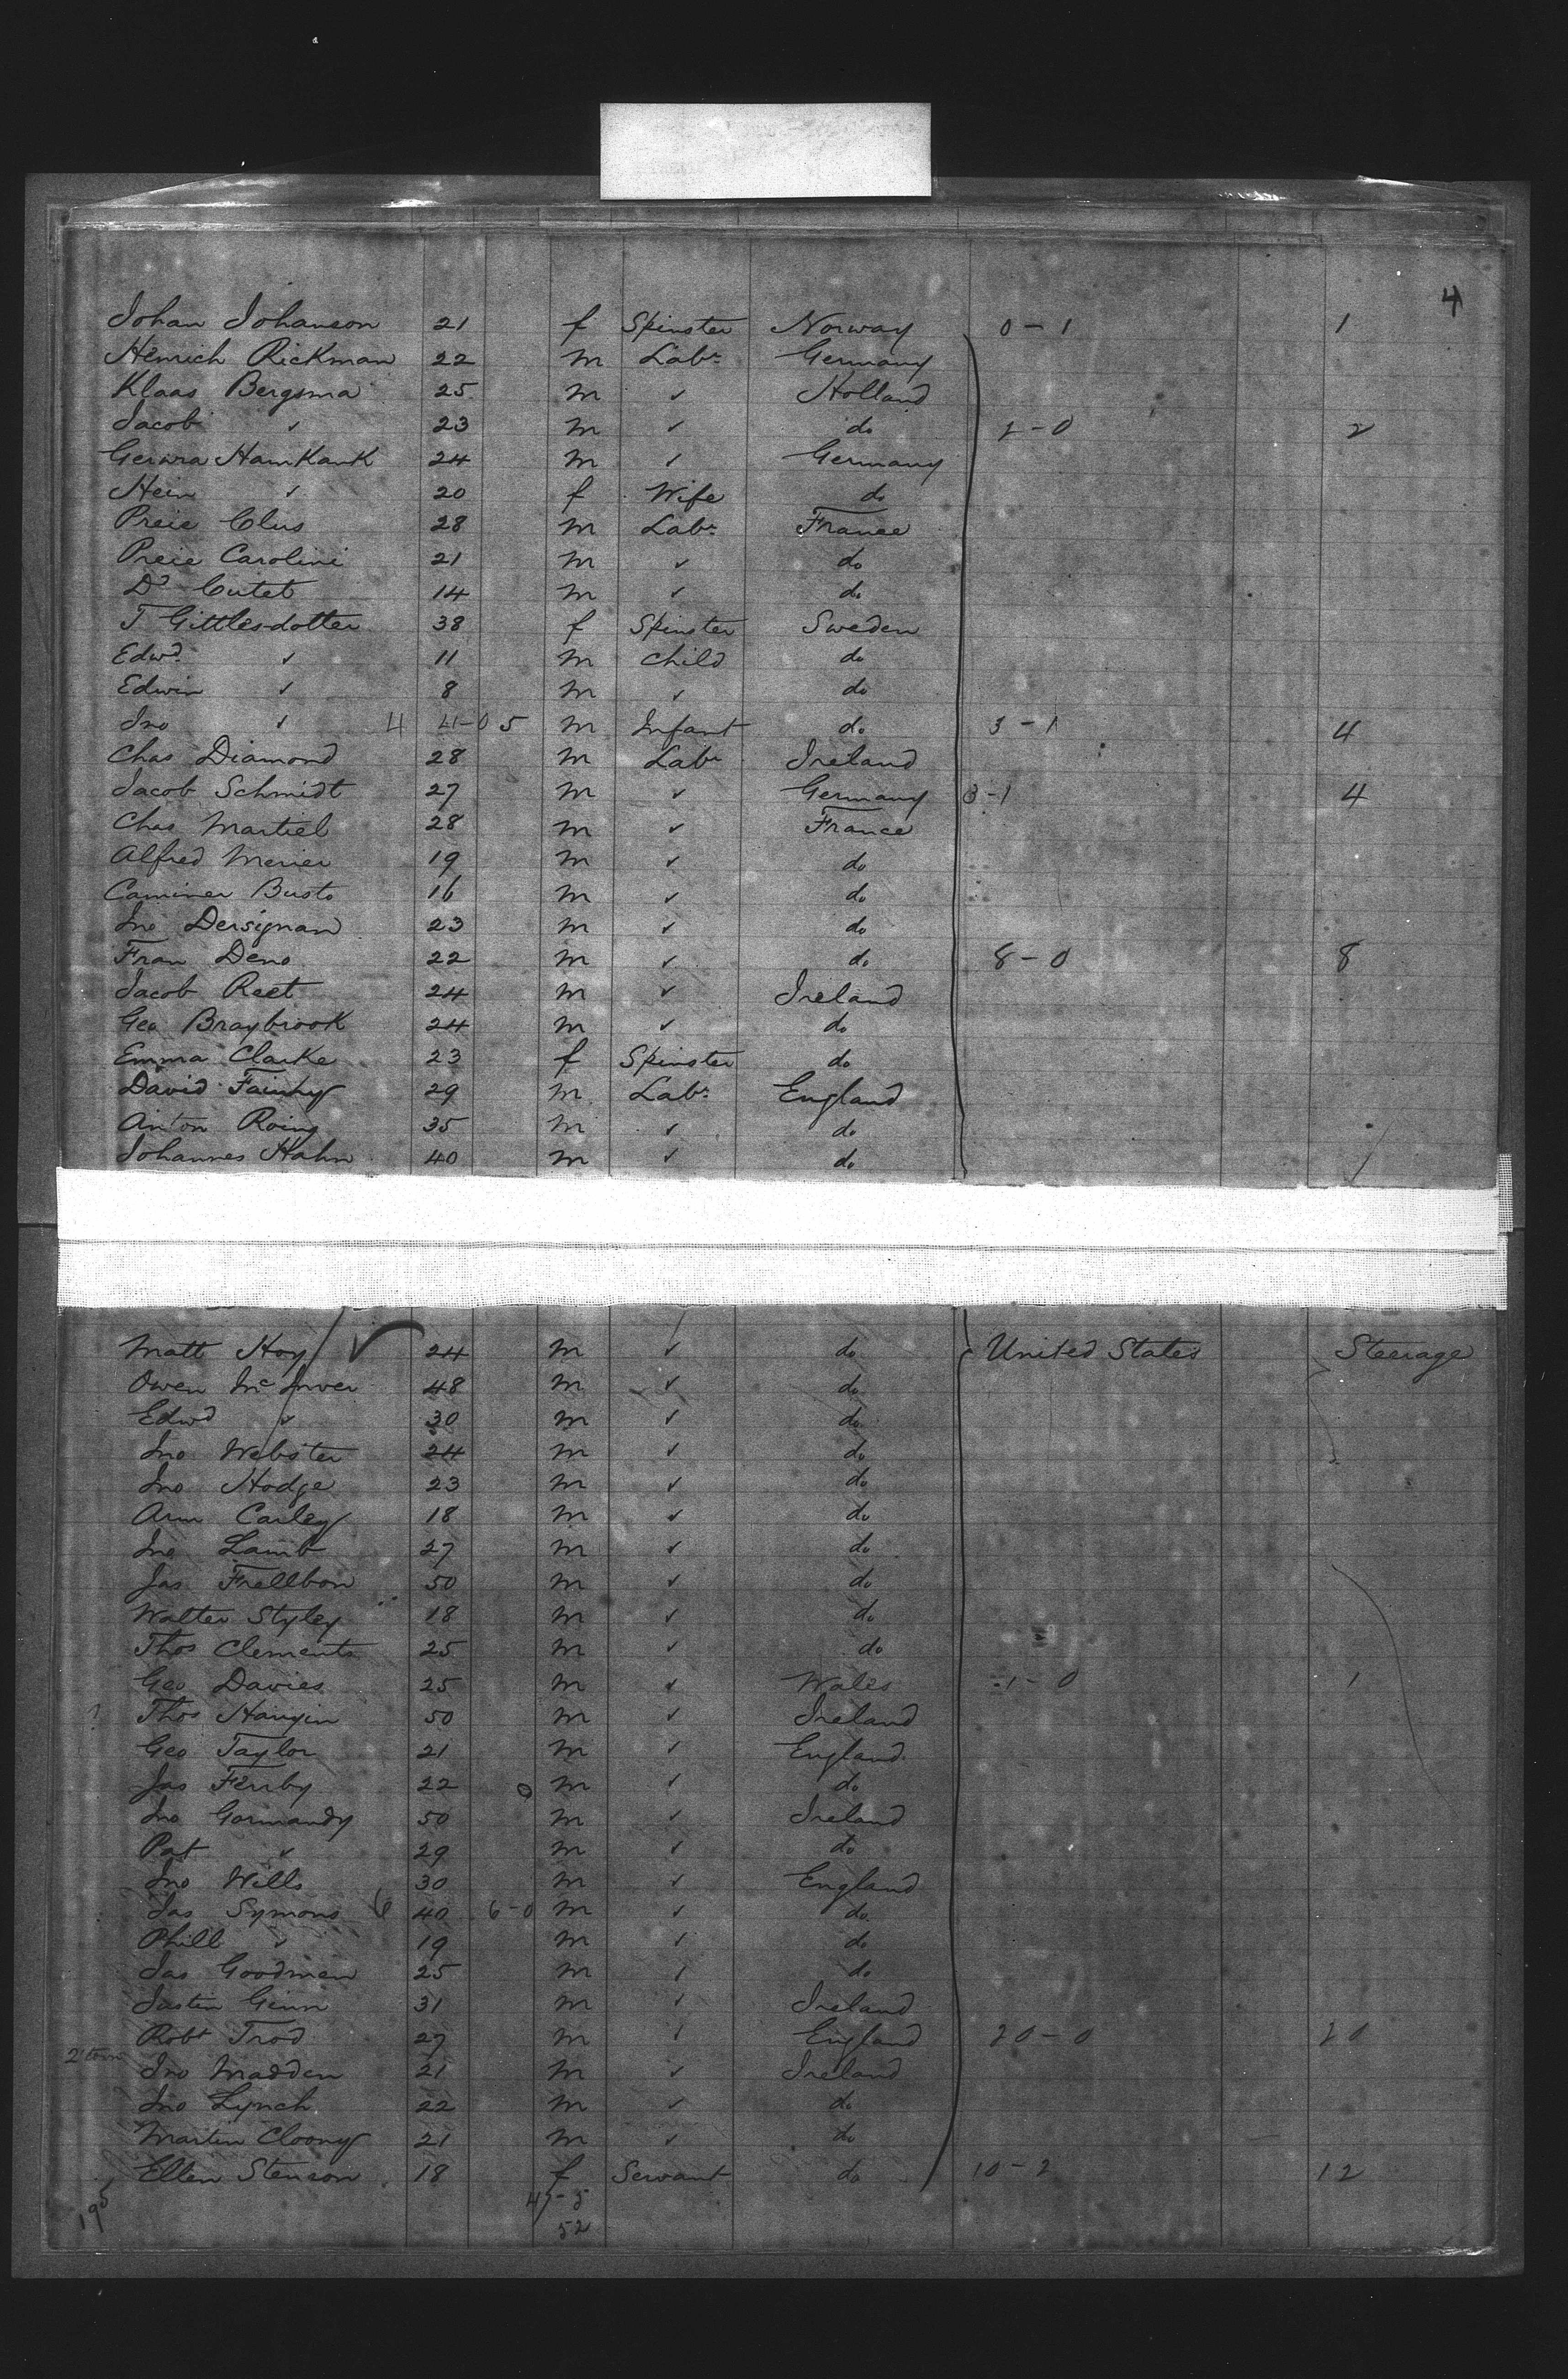 4
Johan Johanson 21 f Spinster Norway 0-1 1
Hinrich Rickman 22 m Labr Germany
Klaas Bergsma 25 m ✓ Holland
Jacob ✓ 23 m ✓ do 2-0 2
Gerwra HamKank 24 m ✓ Germany
Hein ✓ 20 f Wife do
Preie Clus 28 m Labr France
Preie Carolini 21 m ✓ do
Do Cutet 14 m ✓ do
T Gittlesdotter 38 f Spinster Sweden
Edwd ✓ 11 m Child do
Edwin ✓ 8 m ✓ do
Jno ✓ 4 4-0 5 m Infant do 3-1 4
Chas Diamond 28 m Labr Ireland
Jacob Schmidt 27 m ✓ Germany 3-1 4
Chas Martiel 28 m ✓ France
Alfred Merier 19 m ✓ do
Caminer Busto 16 m ✓ do
Jno Dersignan 23 m ✓ do
Fran Deno 22 m ✓ do 8-0 8
Jacob Reet 24 m ✓ Ireland
Geo Braybrook 24 m ✓ do
Emma Clarke 23 f Spinster do
David 29 m Labr England
Anton Roing 35 m ✓ do
Johannes Hahn 40 m ✓ do
Matt Hoy ✓ 24 m ✓ do United States Steerage
Owen McIver 48 m ✓ do
Edwd ✓ 30 m ✓ do
Jno Webster 24 m ✓ do
Jno Hodge 23 m ✓ do
Arm Carley 18 m ✓ do
Jno Lamb 27 m ✓ do
Jas Frellbon 50 m ✓ do
Walter Styley 18 m ✓ do
Thos Clements 25 m ✓ do
Geo Davies 25 m ✓ Wales 1-0 1
Thos Hangin 50 m ✓ Ireland
Geo Taylor 21 m ✓ England
Jas Ferrby 22 0 m ✓ do
Jno Gormandy 50 m ✓ Ireland
Pat ✓ 29 m ✓ do
Jno Wills 30 m ✓ England
Jas Symons 6 40 6-0 m ✓ do
Phill ✓ 19 m ✓ do
Jas Goodman 25 m ✓ do
Justin Ginn 31 m ✓ Ireland
Robt Trod 27 m ✓ England 20-0 20
Jno Madden 21 m ✓ Ireland
Jno Lynch 22 m ✓ do
Martin Cloony 21 m ✓ do
Ellen Stenson 18 f Servant do 10-2 12
195 47-5
52